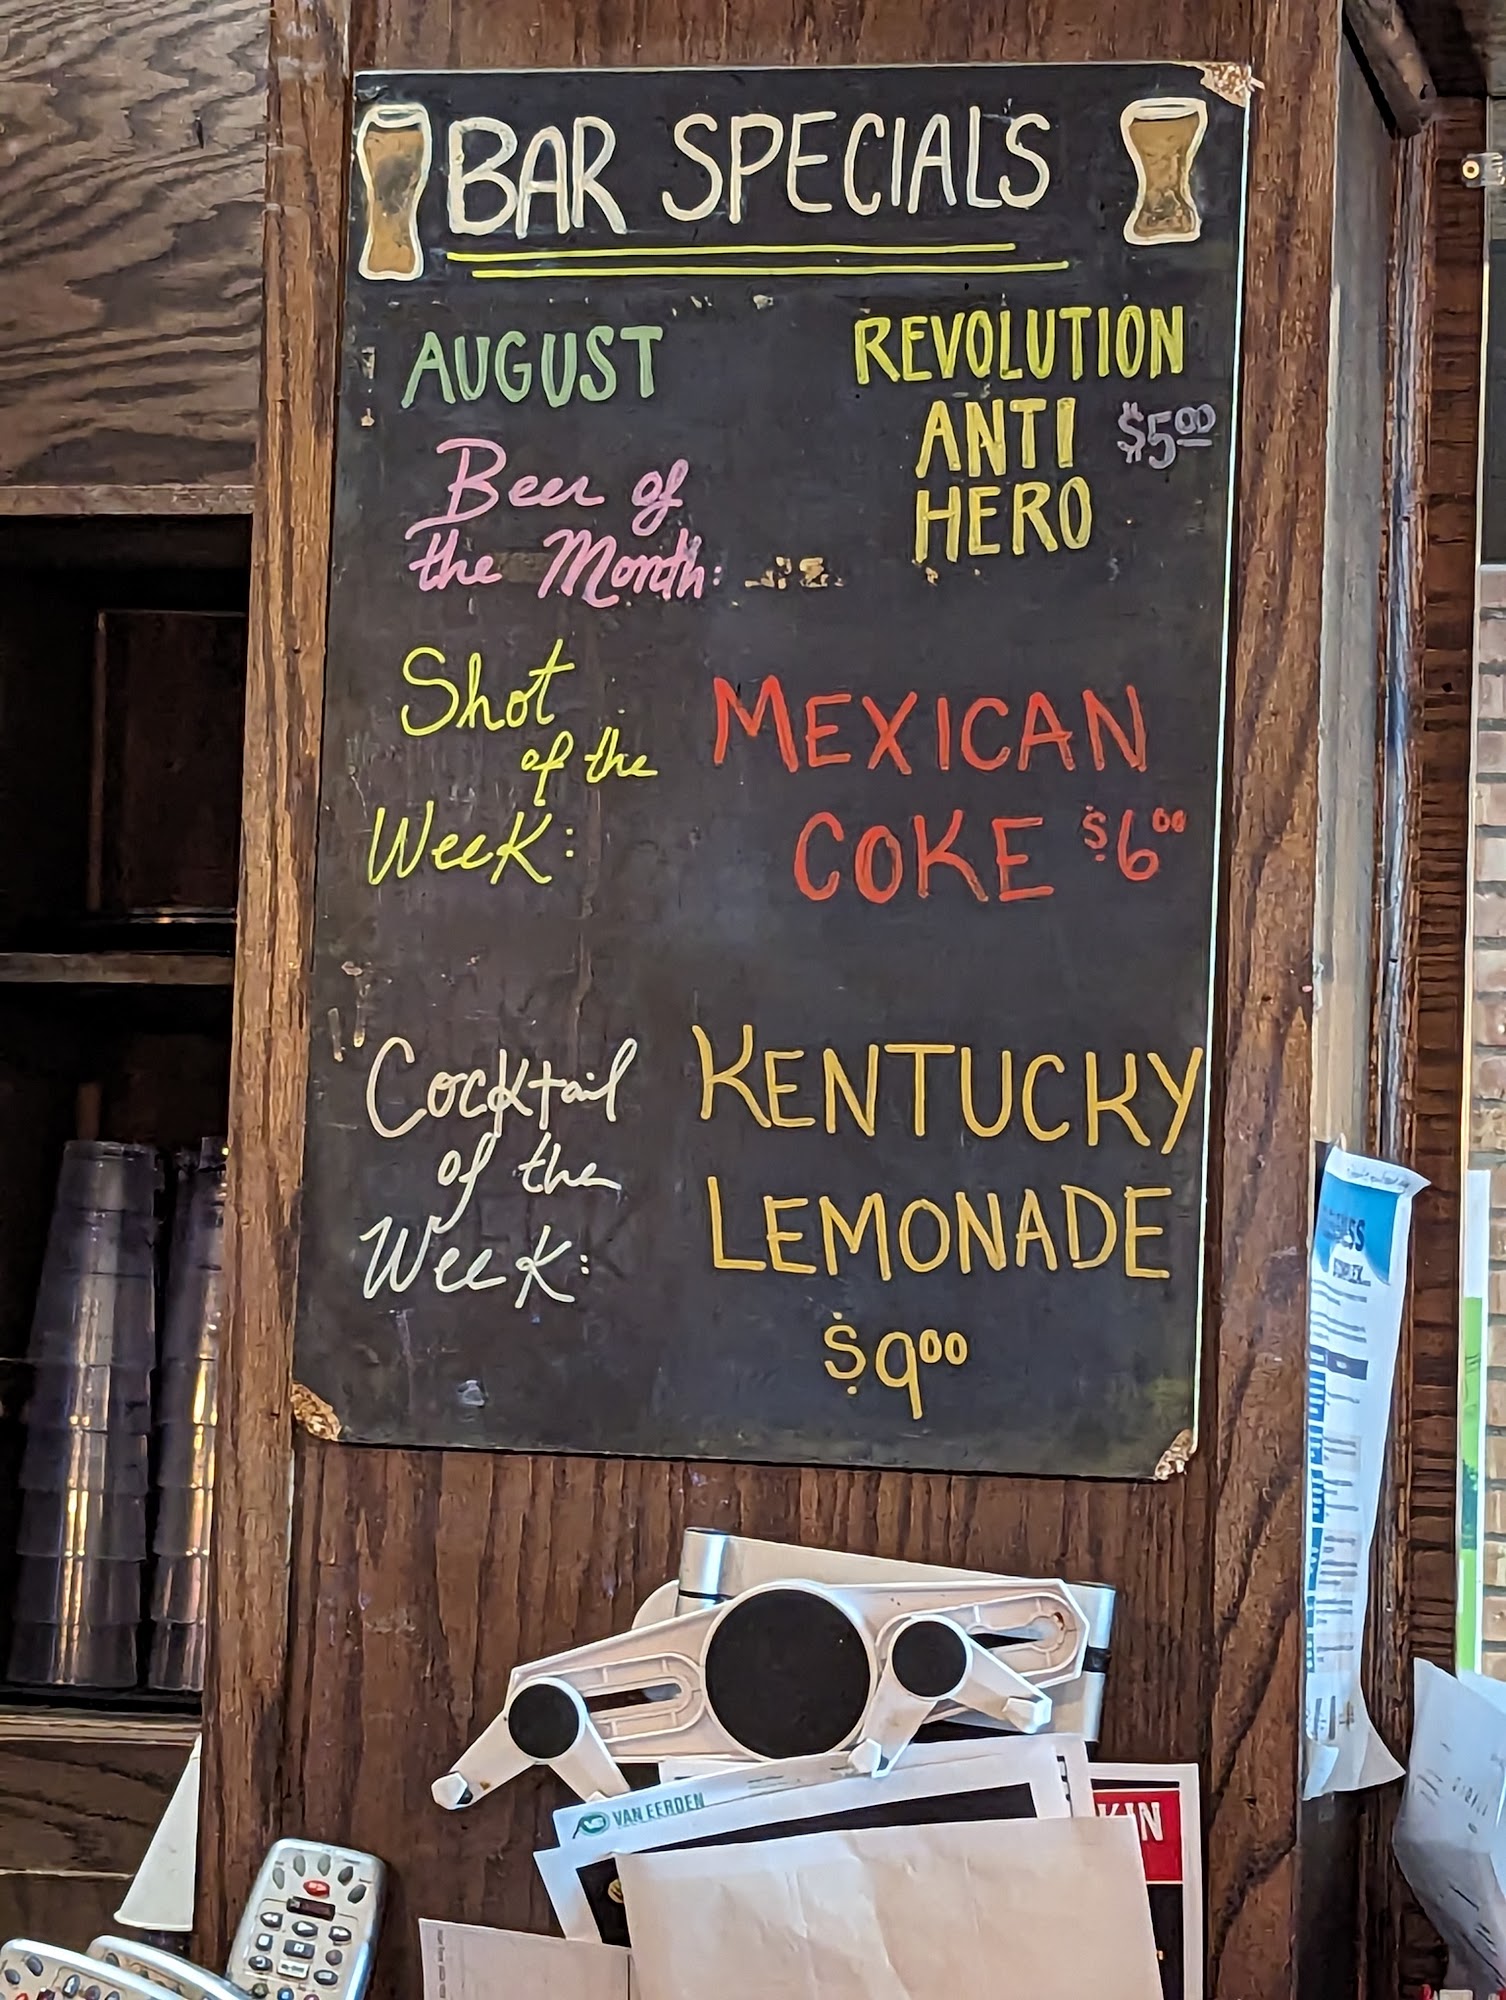 BAR SPECIALS
AUGUST
Beer of
the Month:
REVOLUTION
ANTI $5.00
HERO
Shot
of the
Week:
MEXICAN
COKE $6.00
Cocktail
of the
Week:
KENTUCKY
LEMONADE
$9.00
VAN EERDEN